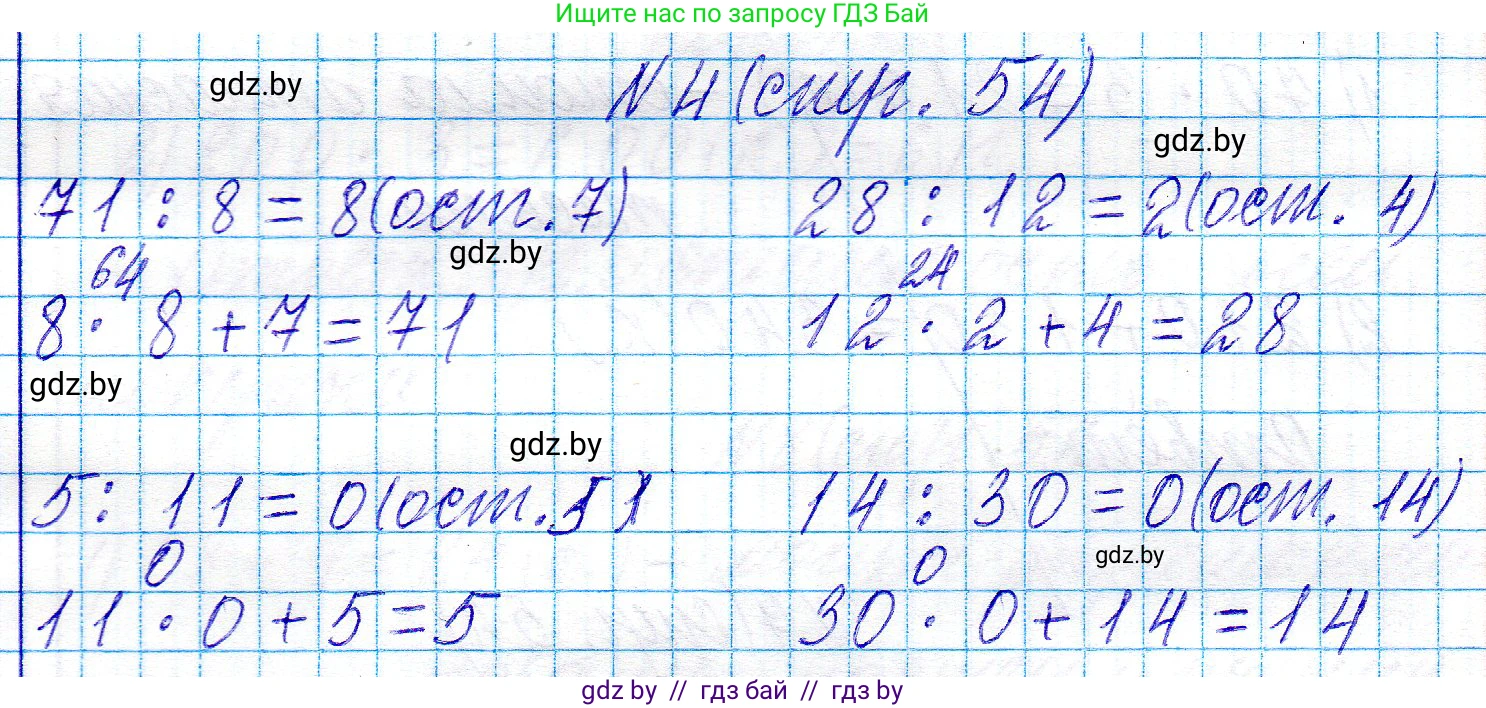 Ищите нас по запросу ГДЗ Бай
gdz.by
N 4 (спут. 54)
gdz.by
71 : 8 = 8 (ост. 7) 28 : 12 = 2 (ост. 4)
64 gdz.by 24
8 · 8 + 7 = 71 12 · 2 + 4 = 28
gdz.by
gdz.by
5 : 11 = 0 (ост. 5) 14 : 30 = 0 (ост. 14)
0 0 gdz.by
11 · 0 + 5 = 5 30 · 0 + 14 = 14
gdz by // гдз бай // гдз by